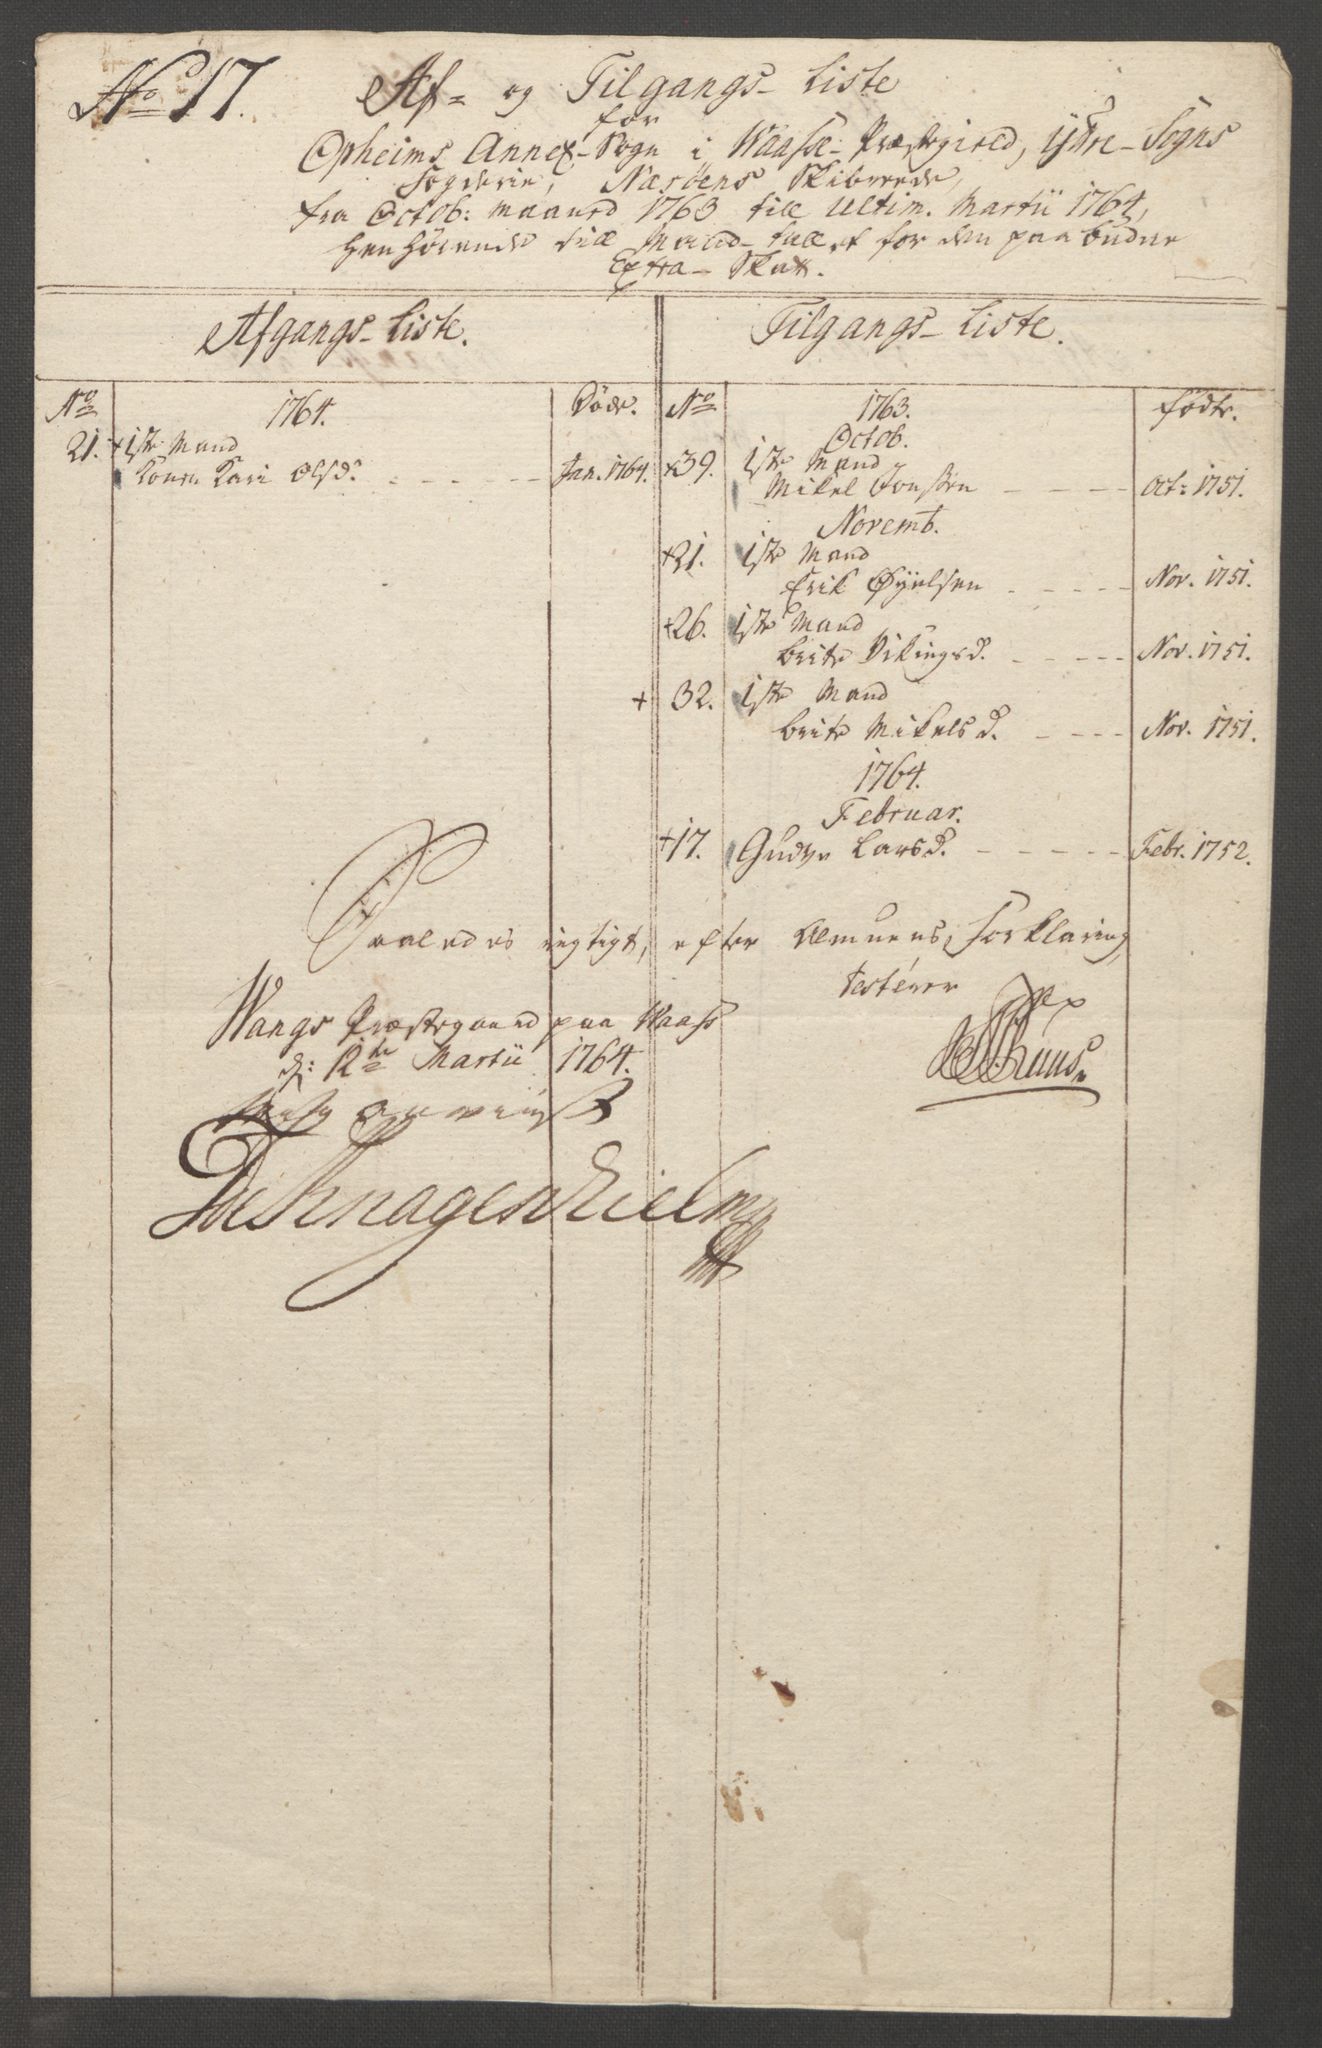 No 17.
Af- og Tilgangs- Liste
for
Opheims Annex-Sogn i Waasse- Præstegield, Ydtre- Sogns
Fogderie, Nærøens Skibrede,
fra Octob: maaned 1763 till Ultim. Martii 1764,
henhørende till Mand-tallet for den paabudne
Extra- Skatt.
Afgangs- Liste. Tilgangs- Liste.
No 1764. Døde. No 1763. fødte.
Octob.
21. + 1ste Mand Kone Kari Olsd. Jan. 1764.
+39. 1ste Mand
Mikel Jonssen Oct: 1751.
Novemb.
+21. 1ste Mand
Erik Øyelsen Nov. 1751.
+26. 1ste Mand
Brite Vikingsd. Nov. 1751.
+ 32. 1ste Mand
Brite Mikelsd. Nov. 1751.
1764.
Februar.
+17. Gudve Larsd. Febr. 1752.
Saaledes rigtigt, efter Almuens Forklaring
testerer
Wangs Præstegaard paa Waass
d: 12te Martii 1764.
Knagenhielm